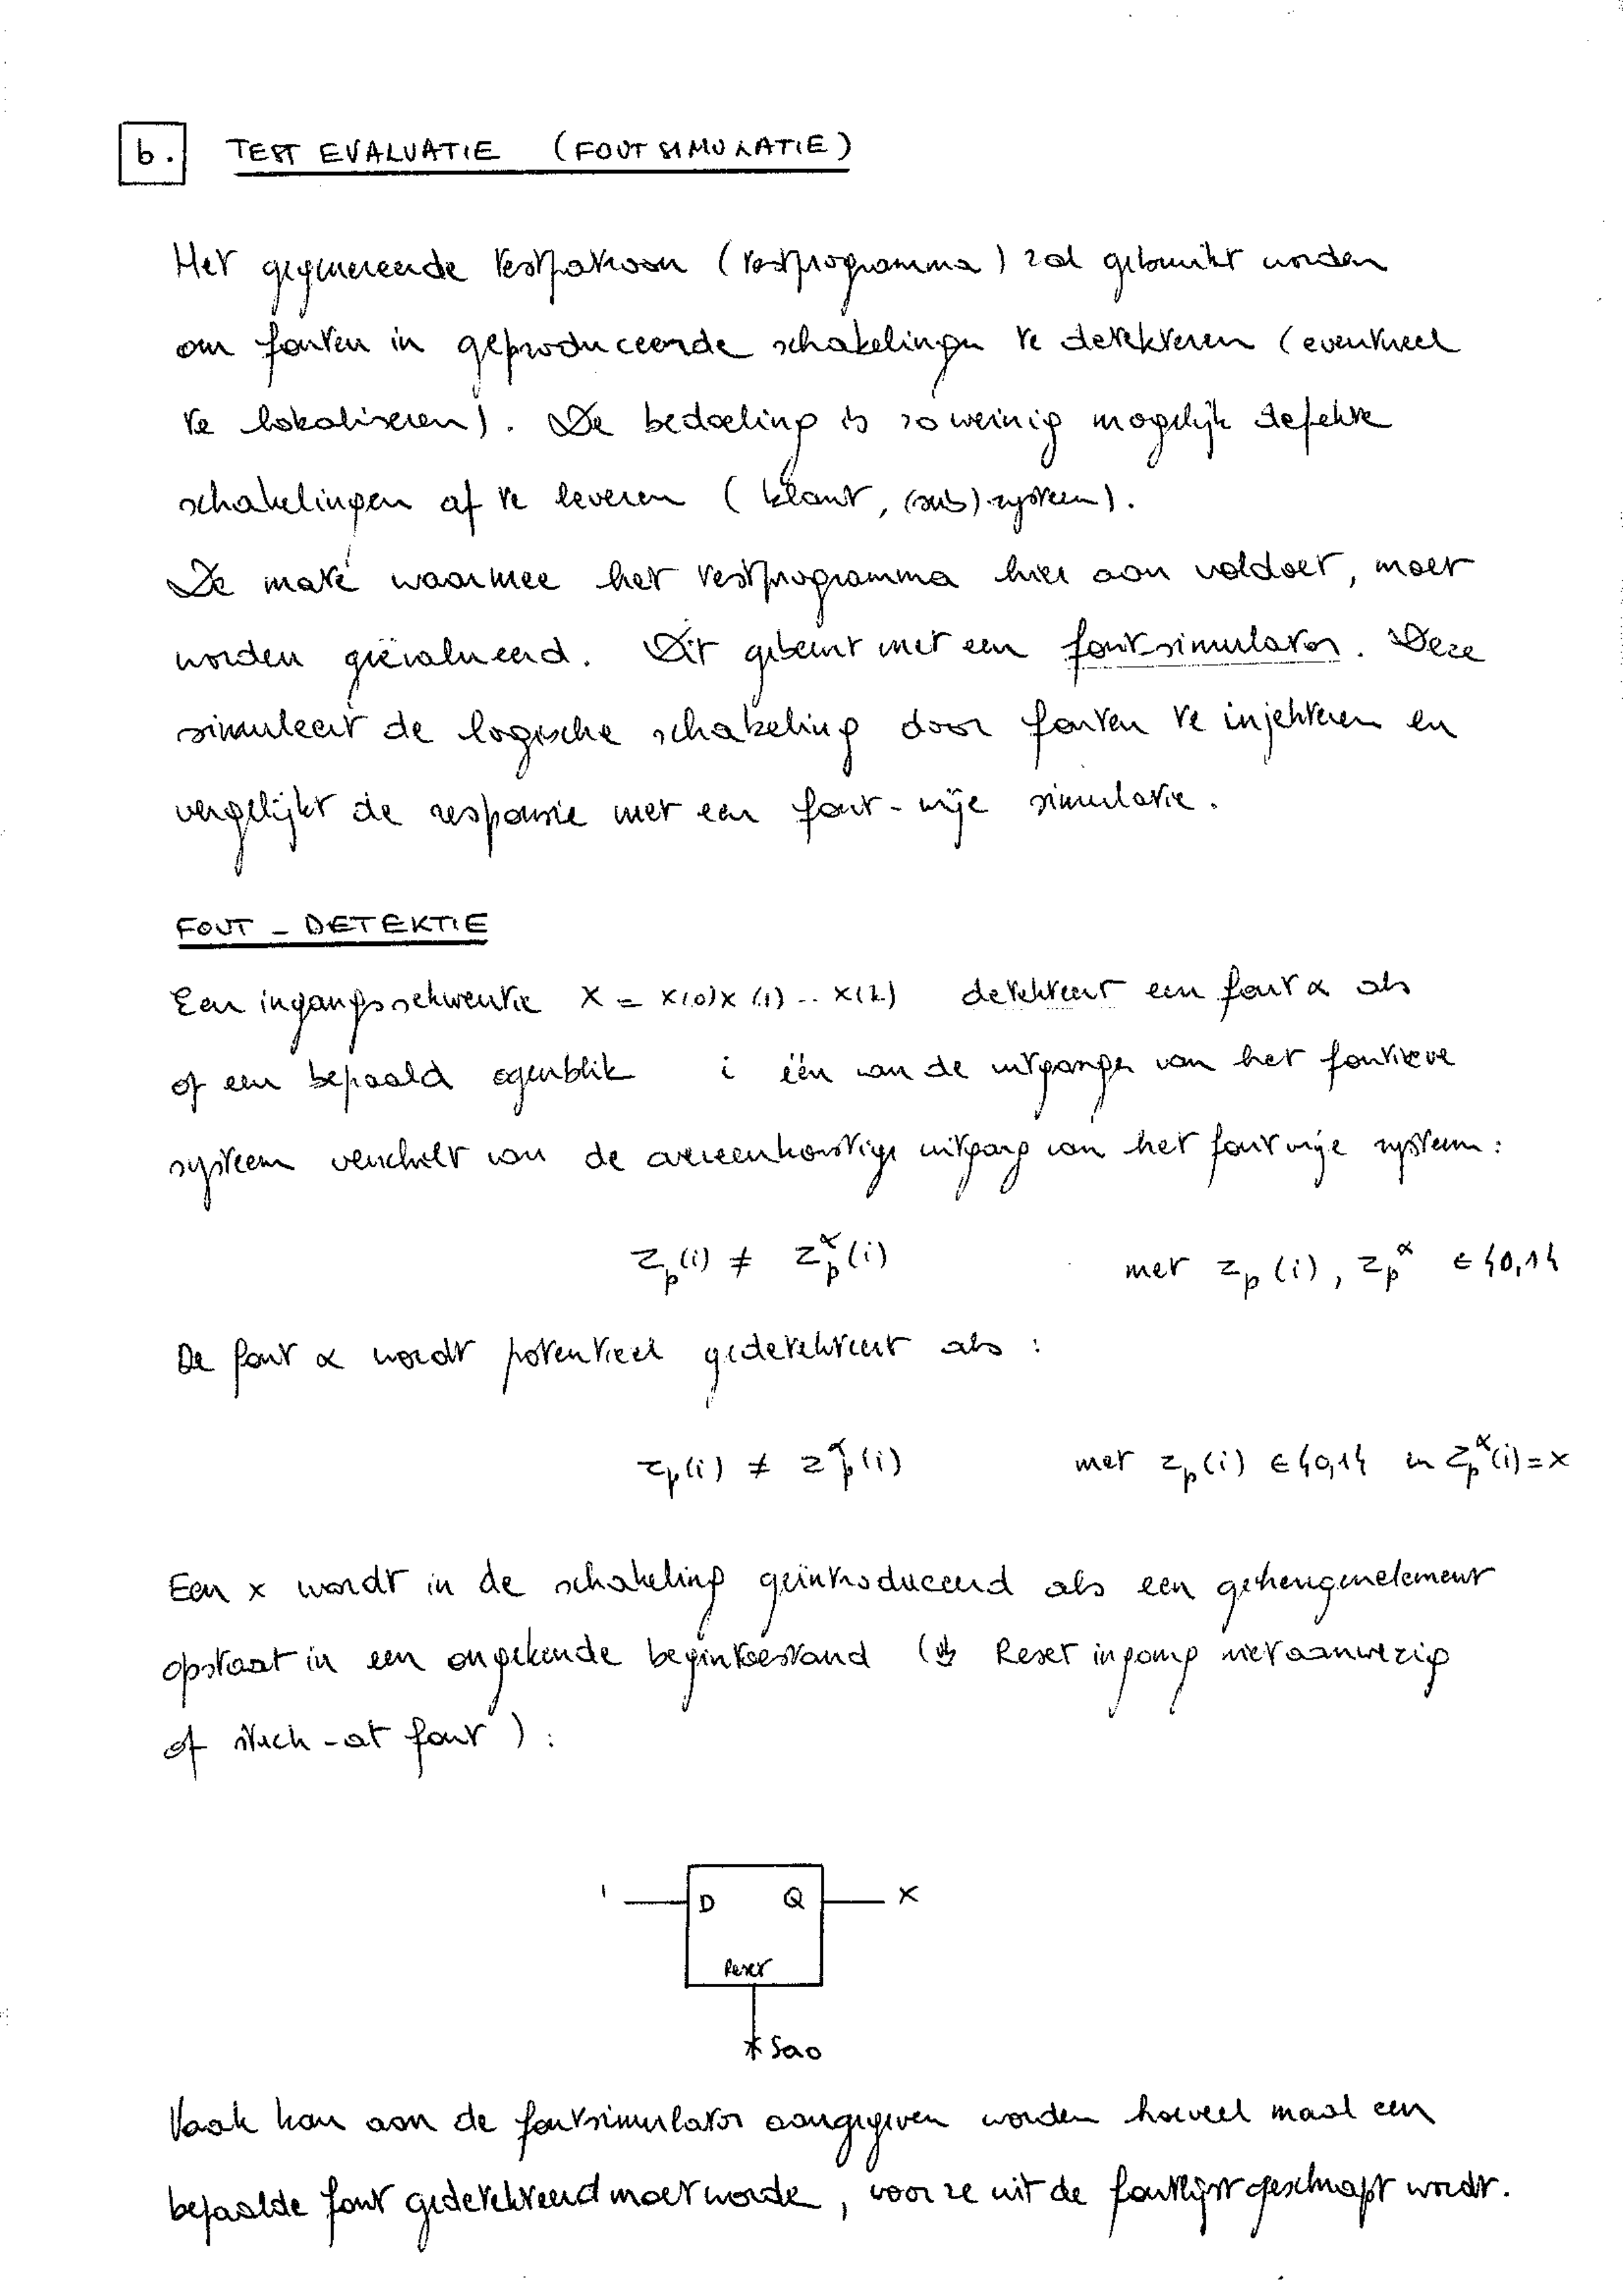 b. TEST EVALUATIE (FOUTSIMULATIE)
Het gegenereerde testpatroon (testprogramma) zal gebruikt worden
om fouten in geproduceerde schakelingen te detekteren (eventueel
te lokaliseren). De bedoeling is zo weinig mogelijk defekte
schakelingen af te leveren (klant, (sub)systeem).
De mate waarmee het testprogramma hier aan voldoet, moet
worden geëvalueerd. Dit gebeurt met een foutsimulator. Deze
simuleert de logische schakeling door fouten te injekteren en
vergelijkt de responsie met een fout-vrije simulatie.
FOUT - DETEKTIE
Een ingangssekwentie X = x(0)x(1)..x(L) detekteert een fout α als
of een bepaald ogenblik i één van de uitgangen van het foutieve
systeem verschilt van de overeenkomstige uitgang van het foutvrije systeem:
z_p(i) ≠ z_p^α(i) met z_p(i), z_p^α ∈ {0,1}
De fout α wordt potentieel gedetekteert als :
z_p(i) ≠ z_p^α(i) met z_p(i) ∈ {0,1} en z_p^α(i) = x
Een x wordt in de schakeling geïntroduceerd als een geheugenelement
opstaat in een ongekende begintoestand ( Reset ingang niet aanwezig
of stuck-at fout ) :
1 D Q X
Reset
* Sa0
Vaak kan aan de foutsimulator aangegeven worden hoeveel maal een
bepaalde fout gedetekteerd moet worde, voor ze uit de foutlijst geschrapt wordt.